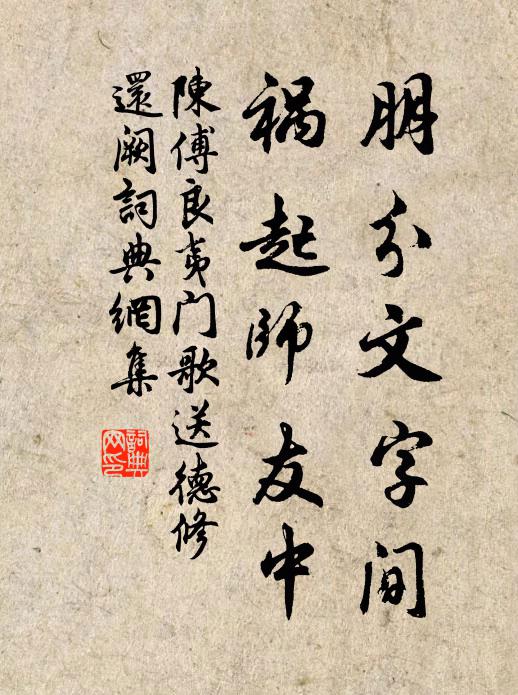 朋分文字间
祸起師友中
陳傅良夷门歌送德修
還阙詞典網集
詞典网印